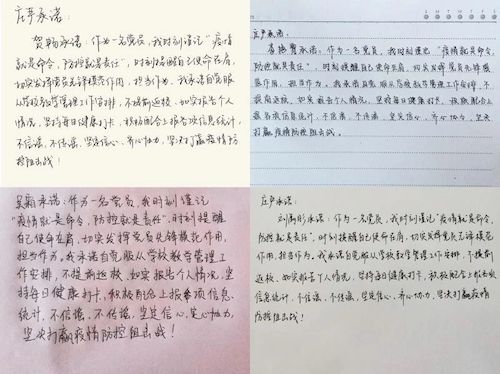 庄严承诺:
贺畅承诺:作为一名党员,我时刻谨记"疫情
就是命令,防控就是责任",时刻提醒自己使命在肩,
切实发挥党员先锋模范作用,担当作为。我承诺自觉服
从学校教学管理工作安排,不提前返校,如实报告个人
情况,坚持每日健康打卡,积极配合上报各项信息统计,
不信谣,不传谣,坚定信心,齐心协力,坚决打赢疫情防
控阻击战!
庄严承诺:
承诺:作为一名党员,我时刻谨记"疫情就是命令,防
控就是责任",时刻提醒自己使命在肩,切实发挥党员先锋模
范作用,担当作为。我承诺自觉服从学校教学管理工作安排,不
提前返校,如实报告个人情况,坚持每日健康打卡,积极配合上
报各项信息统计,不信谣,不传谣,坚定信心,齐心协力,坚决
打赢疫情防控阻击战。
吴颖承诺:作为一名党员,我时刻谨记
"疫情就是命令,防控就是责任",时刻提醒
自己使命在肩,切实发挥党员先锋模范作用,
担当作为,我承诺自觉服从学校教学管理工
作安排,不提前返校,如实报告个人情况,坚
持每日健康打卡,积极配合上报各项信息
统计,不信谣,不传谣,坚定信心,齐心协力,
坚决打赢疫情防控阻击战!
庄严承诺:
刘雨彤承诺:作为一名党员,我时刻谨记"疫情就是命令,
防控就是责任",时刻提醒自己使命在肩,切实发挥党员先锋模范作
用,担当作为。我承诺自觉服从学校教学管理工作安排,不提前
返校、如实报告个人情况,坚持每日健康打卡,积极配合上报各项
信息统计,不信谣、不传谣,坚定信心、齐心协力,坚决打赢疫情
防控阻击战!